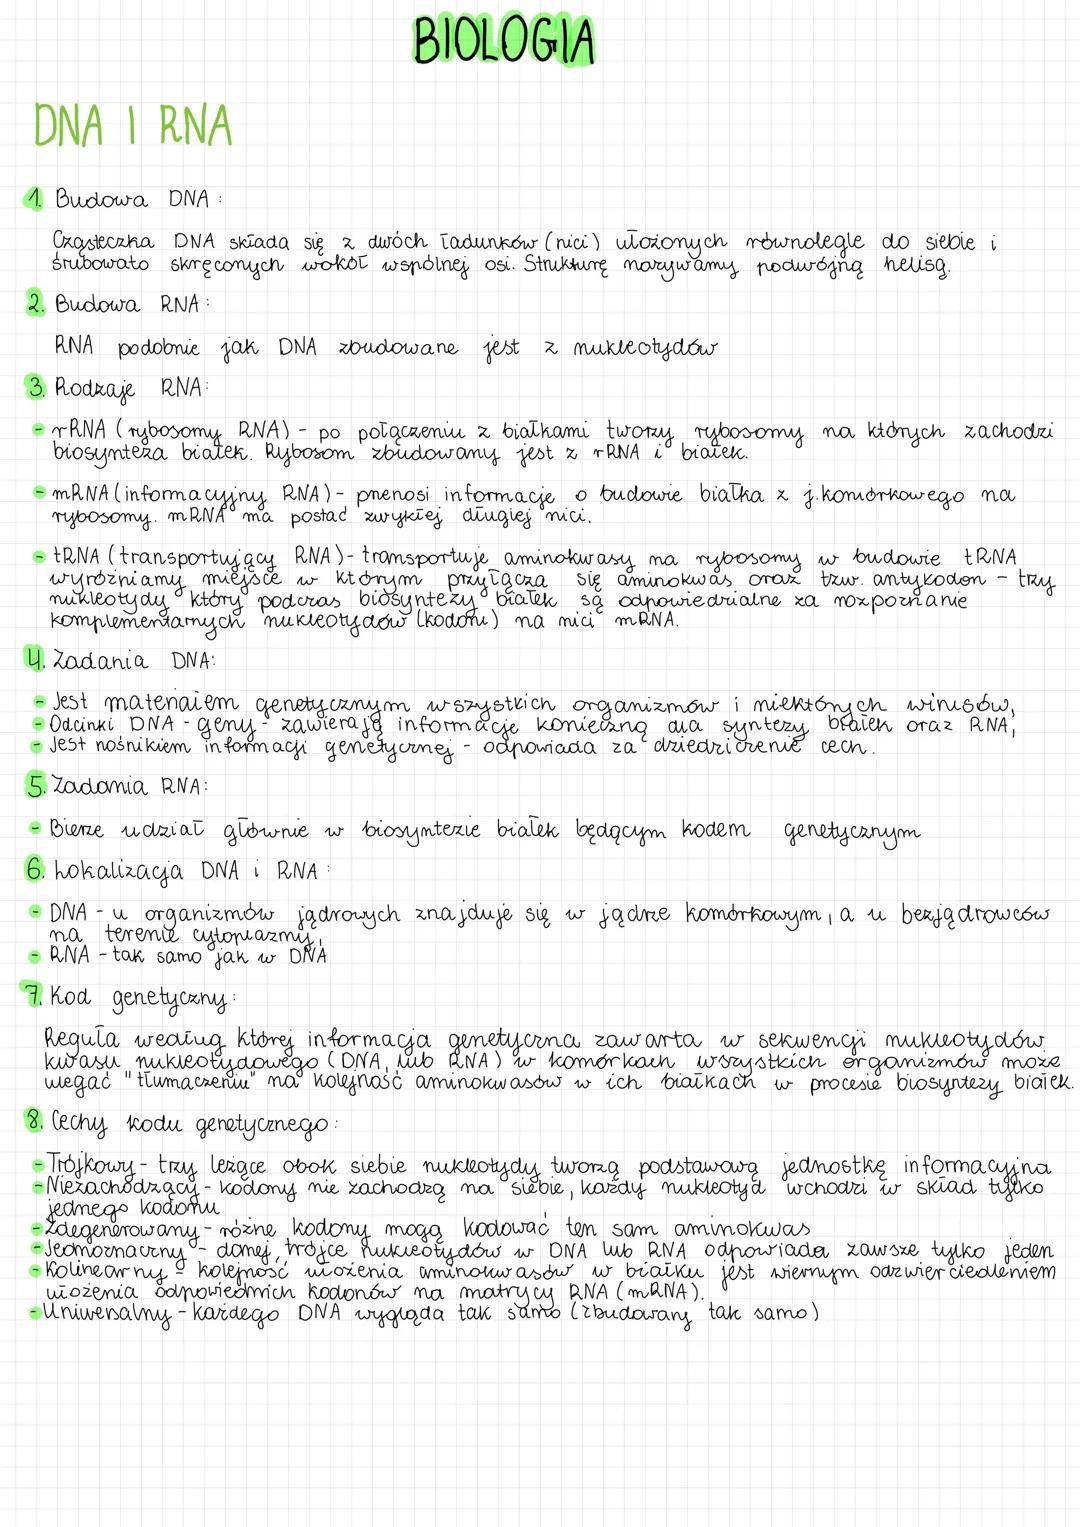 BIOLOGIA
DNA I RNA
1. Budowa DNA:
Cząsteczka DNA składa się z dwóch ładunków (nici) ułożonych równolegle do siebie i
śrubowato skręconych wokół wspólnej osi. Strukturę nazywamy podwójną helisą.
2. Budowa RNA:
RNA podobnie jak DNA zbudowane jest z nukleotydów
3. Rodzaje RNA:
- rRNA (rybosomy RNA) - po połączeniu z białkami tworzy rybosomy na których zachodzi
biosynteza białek. Rybosom zbudowany jest z rRNA i białek.
- mRNA (informacyjny RNA) - przenosi informację o budowie białka z j.komórkowego na
rybosomy. mRNA ma postać zwykłej długiej nici.
- tRNA (transportujący RNA) - transportuje aminokwasy na rybosomy w budowie tRNA
wyróżniamy miejsce w którym przyłącza się aminokwas oraz tzw. antykodon - trzy
nukleotydy który podczas biosyntezy białek są odpowiedzialne za rozpoznanie
komplementarnych nukleotydów (kodonu) na nici mRNA.
4. Zadania DNA:
- Jest materiałem genetycznym wszystkich organizmów i niektórych wirusów,
- Odcinki DNA - geny - zawierają informację konieczną dla syntezy białek oraz RNA,
- Jest nośnikiem informacji genetycznej - odpowiada za dziedziczenie cech.
5. Zadania RNA:
- Bierze udział głównie w biosyntezie białek będącym kodem genetycznym
6. Lokalizacja DNA i RNA:
- DNA - u organizmów jądrowych znajduje się w jądrze komórkowym, a u bezjądrowców
na terenie cytoplazmy,
- RNA - tak samo jak w DNA
7. Kod genetyczny:
Reguła według której informacja genetyczna zawarta w sekwencji nukleotydów
kwasu nukleotydowego (DNA, lub RNA) w komórkach wszystkich organizmów może
ulegać "tłumaczeniu" na kolejność aminokwasów w ich białkach w procesie biosyntezy białek.
8. Cechy kodu genetycznego:
- Trójkowy - trzy leżące obok siebie nukleotydy tworzą podstawową jednostkę informacyjna
- Niezachodzący - kodony nie zachodzą na siebie, każdy nukleotyd wchodzi w skład tylko
jednego kodonu
- Zdegenerowany - różne kodony mogą kodować ten sam aminokwas
- Jednoznaczny - danej trójce nukleotydów w DNA lub RNA odpowiada zawsze tylko jeden
- Kolinearny - kolejność ułożenia aminokwasów w białku jest wiernym odzwierciedleniem
ułożenia odpowiednich kodonów na matrycy RNA (mRNA).
- Uniwersalny - każdego DNA wygląda tak samo (zbudowany tak samo)